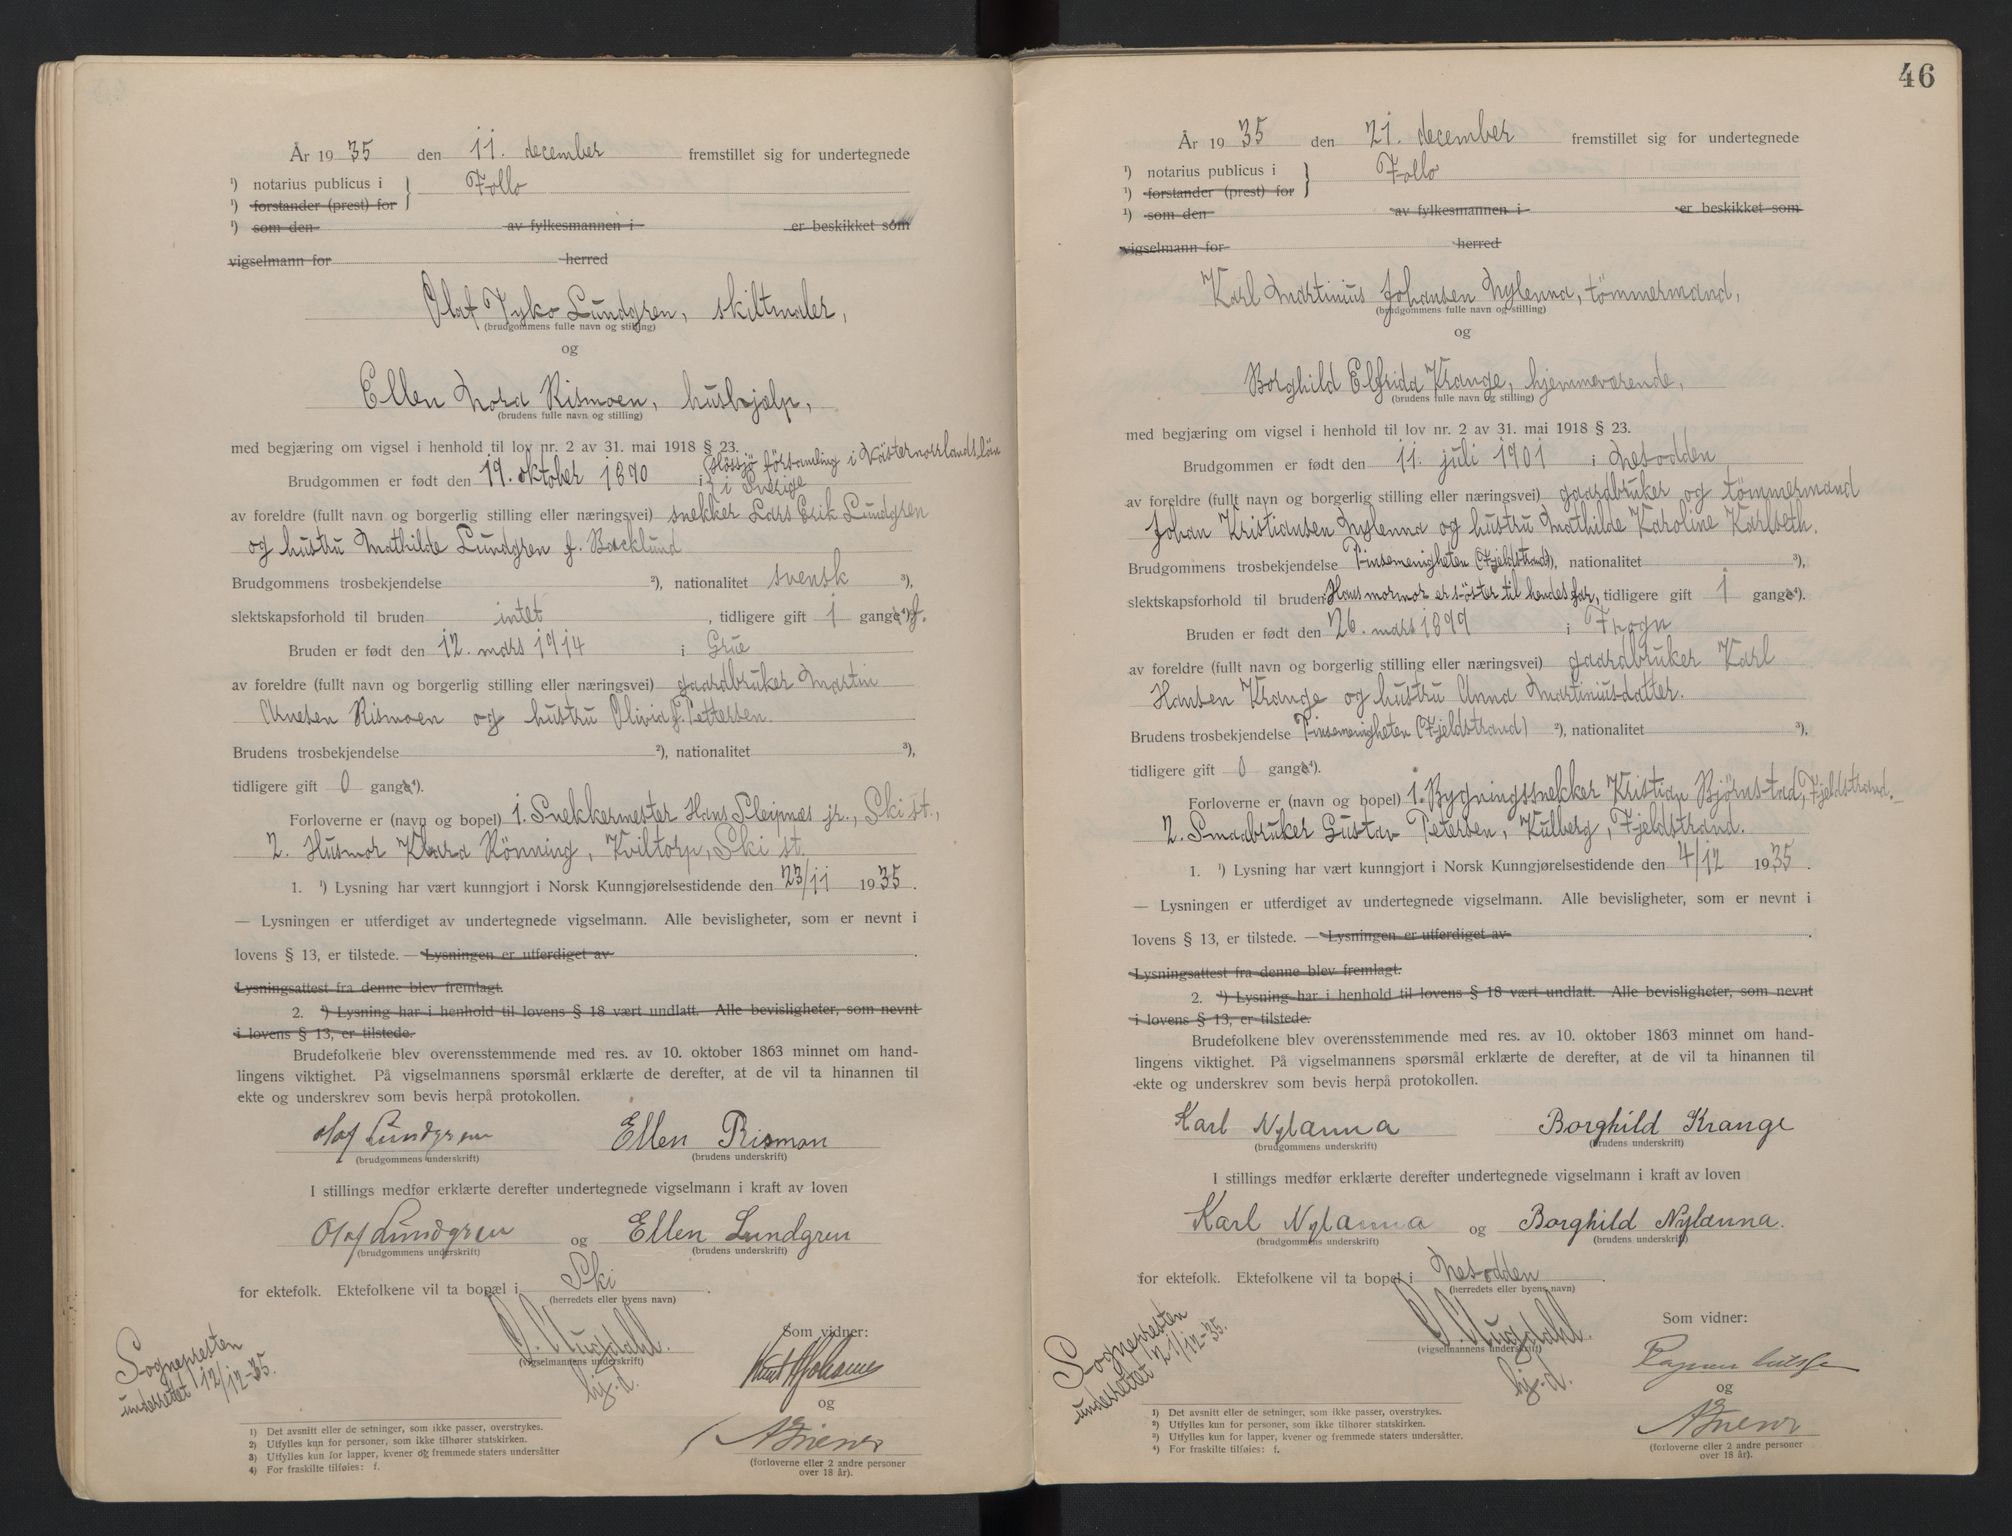 År 1935 den 11. december fremstillet sig for undertegnede
¹) notarius publicus i } Follo
¹) forstander (prest) for
¹) som den av fylkesmannen i er beskikket som
vigselmann for herred
Olaf Tyko Lundgren, skiltmaler,
(brudgommens fulle navn og stilling)
og
Ellen Nora Rismoen, hushjælp,
(brudens fulle navn og stilling)
med begjæring om vigsel i henhold til lov nr. 2 av 31. mai 1918 § 23.
Brudgommen er født den 19. oktober 1890 i Hässjö församling i Västernorrlands län
i Sverige
av foreldre (fullt navn og borgerlig stilling eller næringsvei) snekker Lars Erik Lundgren
og hustru Mathilde Lundgren f. Backlund
Brudgommens trosbekjendelse ²), nationalitet svensk ³),
slektskapsforhold til bruden intet, tidligere gift 1 gang ⁴) f.
Bruden er født den 12. mars 1914 i Grue
av foreldre (fullt navn og borgerlig stilling eller næringsvei) gaardbruker Martin
Arnesen Rismoen og hustru Olivia f. Pettersen.
Brudens trosbekjendelse ²), nationalitet ³),
tidligere gift 0 gange⁴).
Forloverne er (navn og bopel) 1. Snekkermester Hans Sleipnæs jr., Ski st.,
2. Husmor Klara Rönning, Kviltorp, Ski st.
1. ¹) Lysning har vært kunngjort i Norsk Kunngjørelsestidende den 23/11 1935.
— Lysningen er utferdiget av undertegnede vigselmann. Alle bevisligheter, som er nevnt i
lovens § 13, er tilstede. — Lysningen er utferdiget av .
Lysningsattest fra denne blev fremlagt.
2. ¹) Lysning har i henhold til lovens § 18 vært undlatt. Alle bevisligheter, som nevnt
i lovens § 13, er tilstede.
Brudefolkene blev overensstemmende med res. av 10. oktober 1863 minnet om hand-
lingens viktighet. På vigselmannens spørsmål erklærte de derefter, at de vil ta hinannen til
ekte og underskrev som bevis herpå protokollen.
Olaf Lundgren Ellen Rismon
(brudgommens underskrift) (brudens underskrift)
I stillings medfør erklærte derefter undertegnede vigselmann i kraft av loven
Olaf Lundgren og Ellen Lundgren
(brudgommens underskrift) (brudens underskrift)
for ektefolk. Ektefolkene vil ta bopæl i Ski.
(herredets eller byens navn)
Sognepresten
underrettet 12/12-35.
Som vidner:
(vigselmannens underskrift)
hj.d.
og
(forloverne eller 2 andre personer
over 18 år).
1) Det avsnitt eller de setninger, som ikke passer, overstrykes.
2) Utfylles kun for personer, som ikke tilhører statskirken.
3) Utfylles kun for lapper, kvener og fremmede staters undersåtter
4) For fraskilte tilføies: f.
46
År 1935 den 21. december fremstillet sig for undertegnede
¹) notarius publicus i } Follo
¹) forstander (prest) for
¹) som den av fylkesmannen i er beskikket som
vigselmann for herred
Karl Martinius Johansen Nylenna, tömmermand,
(brudgommens fulle navn og stilling)
og
Borghild Elfrida Krange, hjemmeværende,
(brudens fulle navn og stilling)
med begjæring om vigsel i henhold til lov nr. 2 av 31. mai 1918 § 23.
Brudgommen er født den 11. juli 1901 i Nesodden
av foreldre (fullt navn og borgerlig stilling eller næringsvei) gaardbruker og tömmermand
Johan Kristiansen Nylenna og hustru Mathilde Karoline Karlseth.
Brudgommens trosbekjendelse Pinsemenigheten (Fjeldstrand) ²), nationalitet ³),
slektskapsforhold til bruden Hans mormor er söster til hendes far, tidligere gift 1 gang⁴).
Bruden er født den 26. mars 1899 i Frogn
av foreldre (fullt navn og borgerlig stilling eller næringsvei) gaardbruker Karl
Hansen Krange og hustru Anna Martiniusdatter.
Brudens trosbekjendelse Pinsemenigheten (Fjeldstrand) ²), nationalitet ³),
tidligere gift 0 gange⁴).
Forloverne er (navn og bopel) 1. Bygningssnekker Kristian Björnstad, Fjeldstrand.
2. Smaabruker Gustav Petersen, Kulberg, Fjeldstrand.
1. ¹) Lysning har vært kunngjort i Norsk Kunngjørelsestidende den 4/12 1935.
— Lysningen er utferdiget av undertegnede vigselmann. Alle bevisligheter, som er nevnt i
lovens § 13, er tilstede. — Lysningen er utferdiget av .
Lysningsattest fra denne blev fremlagt.
2. ¹) Lysning har i henhold til lovens § 18 vært undlatt. Alle bevisligheter, som nevnt
i lovens § 13, er tilstede.
Brudefolkene blev overensstemmende med res. av 10. oktober 1863 minnet om hand-
lingens viktighet. På vigselmannens spørsmål erklærte de derefter, at de vil ta hinannen til
ekte og underskrev som bevis herpå protokollen.
Karl Nylænna Borghild Krange
(brudgommens underskrift) (brudens underskrift)
I stillings medfør erklærte derefter undertegnede vigselmann i kraft av loven
Karl Nylænna og Borghild Nylænna.
(brudgommens underskrift) (brudens underskrift)
for ektefolk. Ektefolkene vil ta bopel i Nesodden.
(herredets eller byens navn)
Sognepresten
underrettet 21/12-35.
Som vidner:
(vigselmannens underskrift)
hj.d.
og
(forloverne eller 2 andre personer
over 18 år).
1) Det avsnitt eller de setninger, som ikke passer, overstrykes.
2) Utfylles kun for personer, som ikke tilhører statskirken.
3) Utfylles kun for lapper, kvener og fremmede staters undersåtter.
4) For fraskilte tilføies: f.